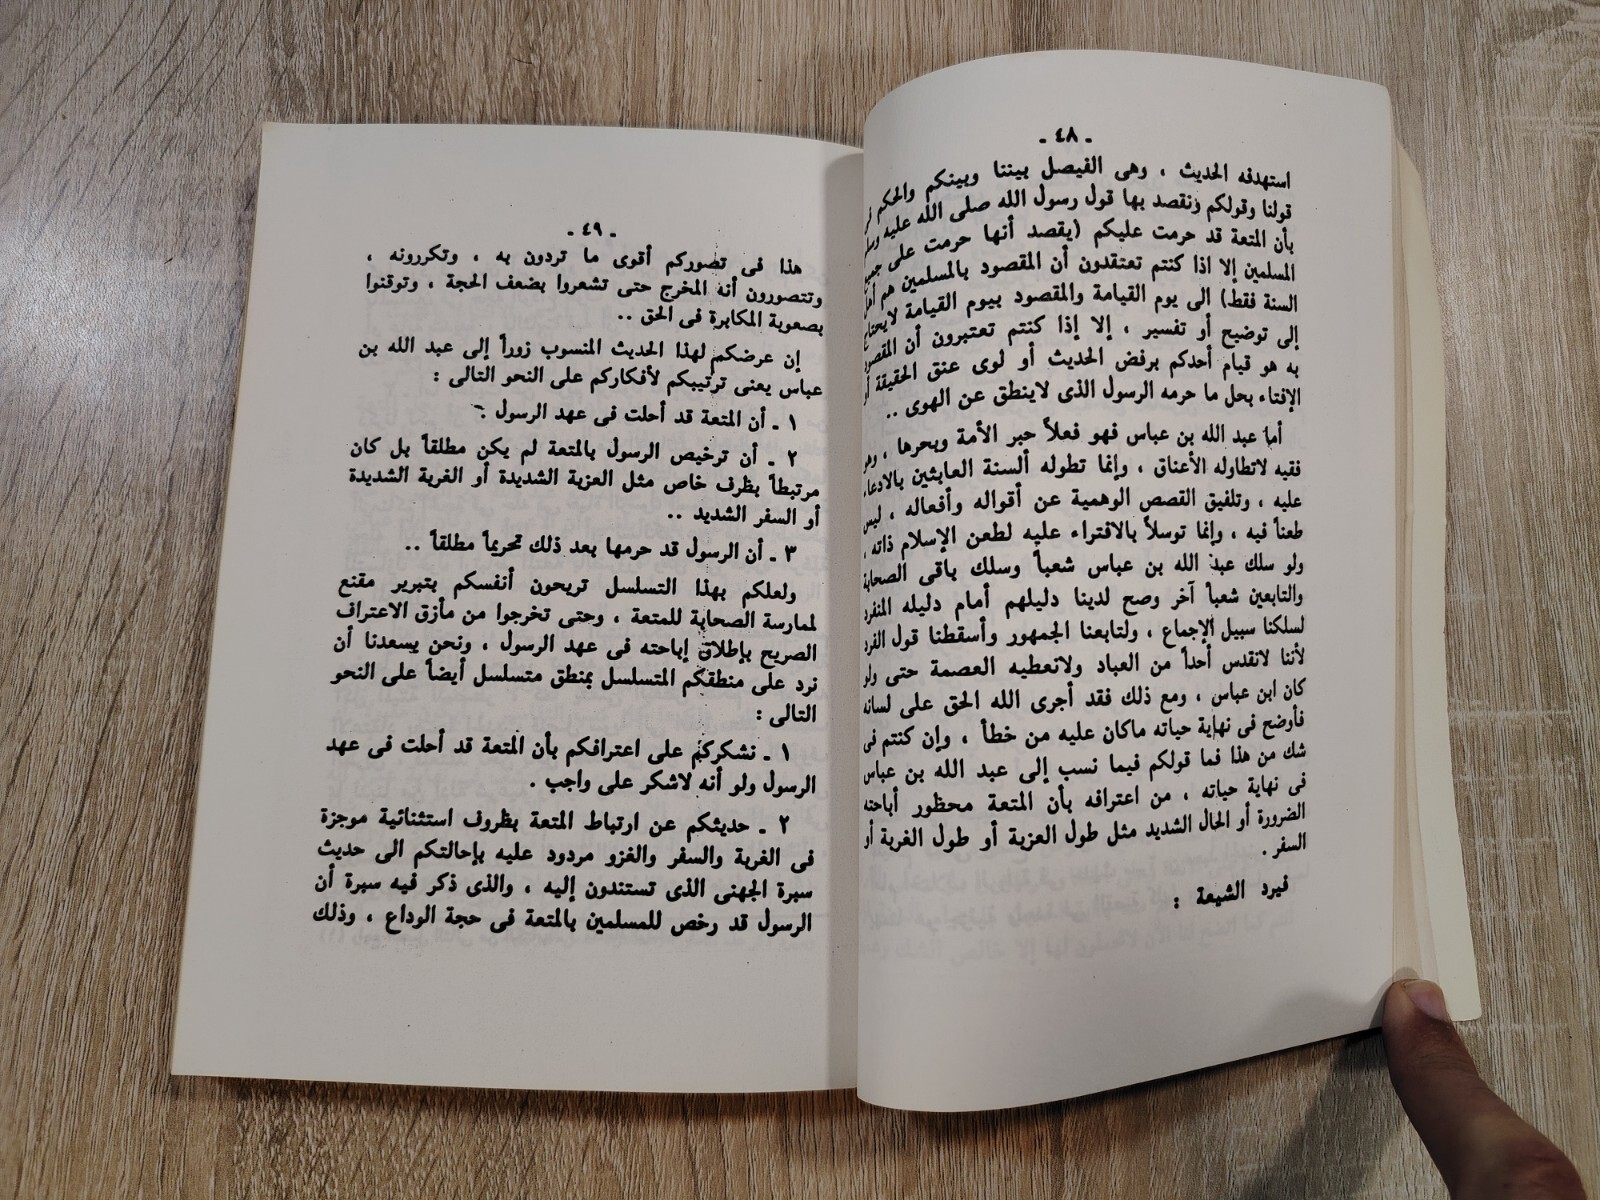 ـ ٤٨ ـ
استهدفه الحديث ، وهى الفيصل بيننا وبينكم والحكم
قولنا وقولكم ونقصد بها قول رسول الله صلى الله عليه وسلم
بأن المتعة قد حرمت عليكم (يقصد أنها حرمت على جميع
المسلمين إلا اذا كنتم تعتقدون أن المقصود بالمسلمين هم أهل
السنة فقط) الى يوم القيامة والمقصود بيوم القيامة لايحتاج
إلى توضيح أو تفسير ، إلا إذا كنتم تعتبرون أن المقصود
به هو قيام أحدكم برفض الحديث أو لوى عنق الحقيقة أو
الإفتاء بحل ما حرمه الرسول الذى لاينطق عن الهوى ..
أما عبد الله بن عباس فهو فعلاً حبر الأمة وبحرها ، وهو
فقيه لاتطاوله الأعناق ، وإنما تطوله ألسنة العابثين بالادعاء
عليه ، وتلفيق القصص الوهمية عن أقواله وأفعاله ، ليس
طعناً فيه ، وإنما توسلاً بالافتراء عليه لطعن الإسلام ذاته ،
ولو سلك عبد الله بن عباس شعباً وسلك باقى الصحابة
والتابعين شعباً آخر وصح لدينا دليلهم أمام دليله المنفرد
لسلكنا سبيل الإجماع ، ولتابعنا الجمهور وأسقطنا قول الفرد
لأننا لانقدس أحداً من العباد ولانعطيه العصمة حتى ولو
كان ابن عباس ، ومع ذلك فقد أجرى الله الحق على لسانه
فأوضح فى نهاية حياته ماكان عليه من خطأ ، وإن كنتم فى
شك من هذا فما قولكم فيما نسب إلى عبد الله بن عباس
فى نهاية حياته ، من اعترافه بأن المتعة محظور أباحته
الضرورة أو الحال الشديد مثل طول العزبة أو طول الغربة أو
السفر .
فيرد الشيعة :
ـ ٤٩ ـ
هذا فى تصوركم أقوى ما تردون به ، وتكررونه ،
وتتصورون أنه المخرج حتى تشعروا بضعف الحجة ، وتوقنوا
بصعوبة المكابرة فى الحق ..
إن عرضكم لهذا الحديث المنسوب زوراً إلى عبد الله بن
عباس يعنى ترتيبكم لأفكاركم على النحو التالى :
١ ـ أن المتعة قد أحلت فى عهد الرسول .
٢ ـ أن ترخيص الرسول بالمتعة لم يكن مطلقاً بل كان
مرتبطاً بظرف خاص مثل العزبة الشديدة أو الغربة الشديدة
أو السفر الشديد ..
٣ ـ أن الرسول قد حرمها بعد ذلك تحريماً مطلقاً ..
ولعلكم بهذا التسلسل تريحون أنفسكم بتبرير مقنع
لممارسة الصحابة للمتعة ، وحتى تخرجوا من مأزق الاعتراف
الصريح بإطلاق إباحته فى عهد الرسول ، ونحن يسعدنا أن
نرد على منطقكم المتسلسل بمنطق متسلسل أيضاً على النحو
التالى :
١ ـ نشكركم على اعترافكم بأن المتعة قد أحلت فى عهد
الرسول ولو أنه لاشكر على واجب .
٢ ـ حديثكم عن ارتباط المتعة بظروف استثنائية موجزة
فى الغربة والسفر والغزو مردود عليه بإحالتكم الى حديث
سبرة الجهنى الذى تستندون إليه ، والذى ذكر فيه سبرة أن
الرسول قد رخص للمسلمين بالمتعة فى حجة الوداع ، وذلك